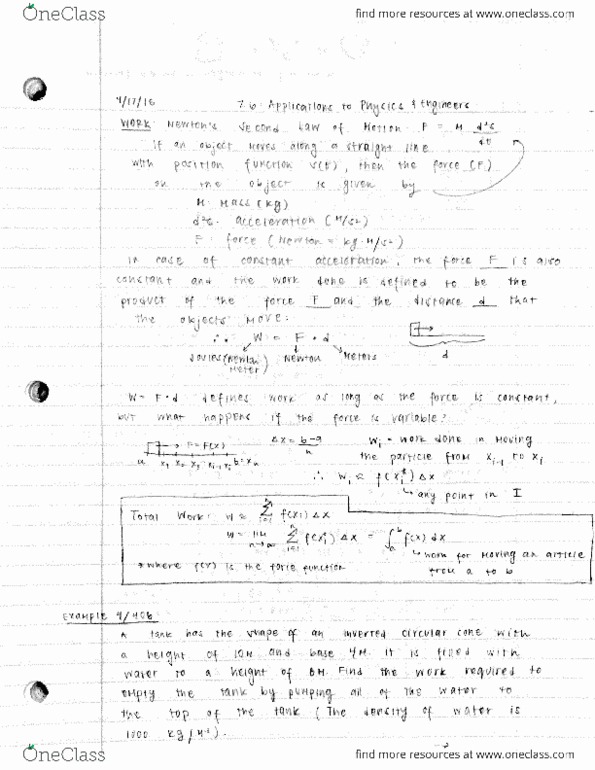 OneClass
find more resources at www.oneclass.com
4/17/16
7.6 Applications to Physics & Engineers
WORK: Newton's Second Law of Motion F = M d²s/dt
if an object moves along a straight line
with position function s(t), then the force (F)
on the object is given by
M: Mass (kg)
d²s: acceleration (M/s²)
F: force (Newton = kg·M/s²)
In case of constant acceleration, the force F is also
constant and the work done is defined to be the
product of the force F and the distance d that
the objects move:
∴ W = F · d
Joules (Newton Meter) Newton Meters
d
W = F·d defines work as long as the force is constant,
but what happens if the force is variable?
F = F(x)
Δx = b-a/n
Wi = work done in moving
the particle from xi-1 to xi
a x1 x2 x3 xi-1 xi b=xn
∴ Wi ≈ f(xi*) Δx
any point in I
Total Work: W ≈ Σ f(xi) Δx
W = lim n→∞ Σ f(xi*) Δx = ∫ab f(x) dx
work for moving an article
from a to b
*where f(x) is the force function
Example 4/406
A tank has the shape of an inverted circular cone with
a height of 10M and base 4M. It is filled with
water to a height of 8M. Find the work required to
empty the tank by pumping all of the water to
the top of the tank (The density of water is
1000 kg/M³).
OneClass
find more resources at www.oneclass.com